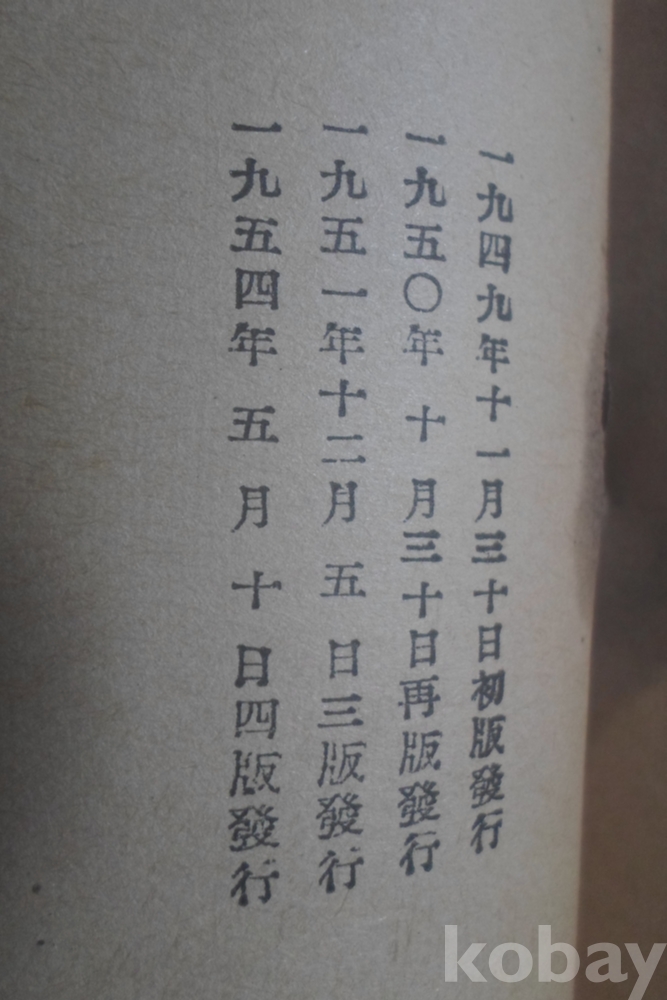 一九四九年十一月三十日初版發行
一九五〇年十月三十日再版發行
一九五一年十二月五日三版發行
一九五四年五月十日四版發行
kobay